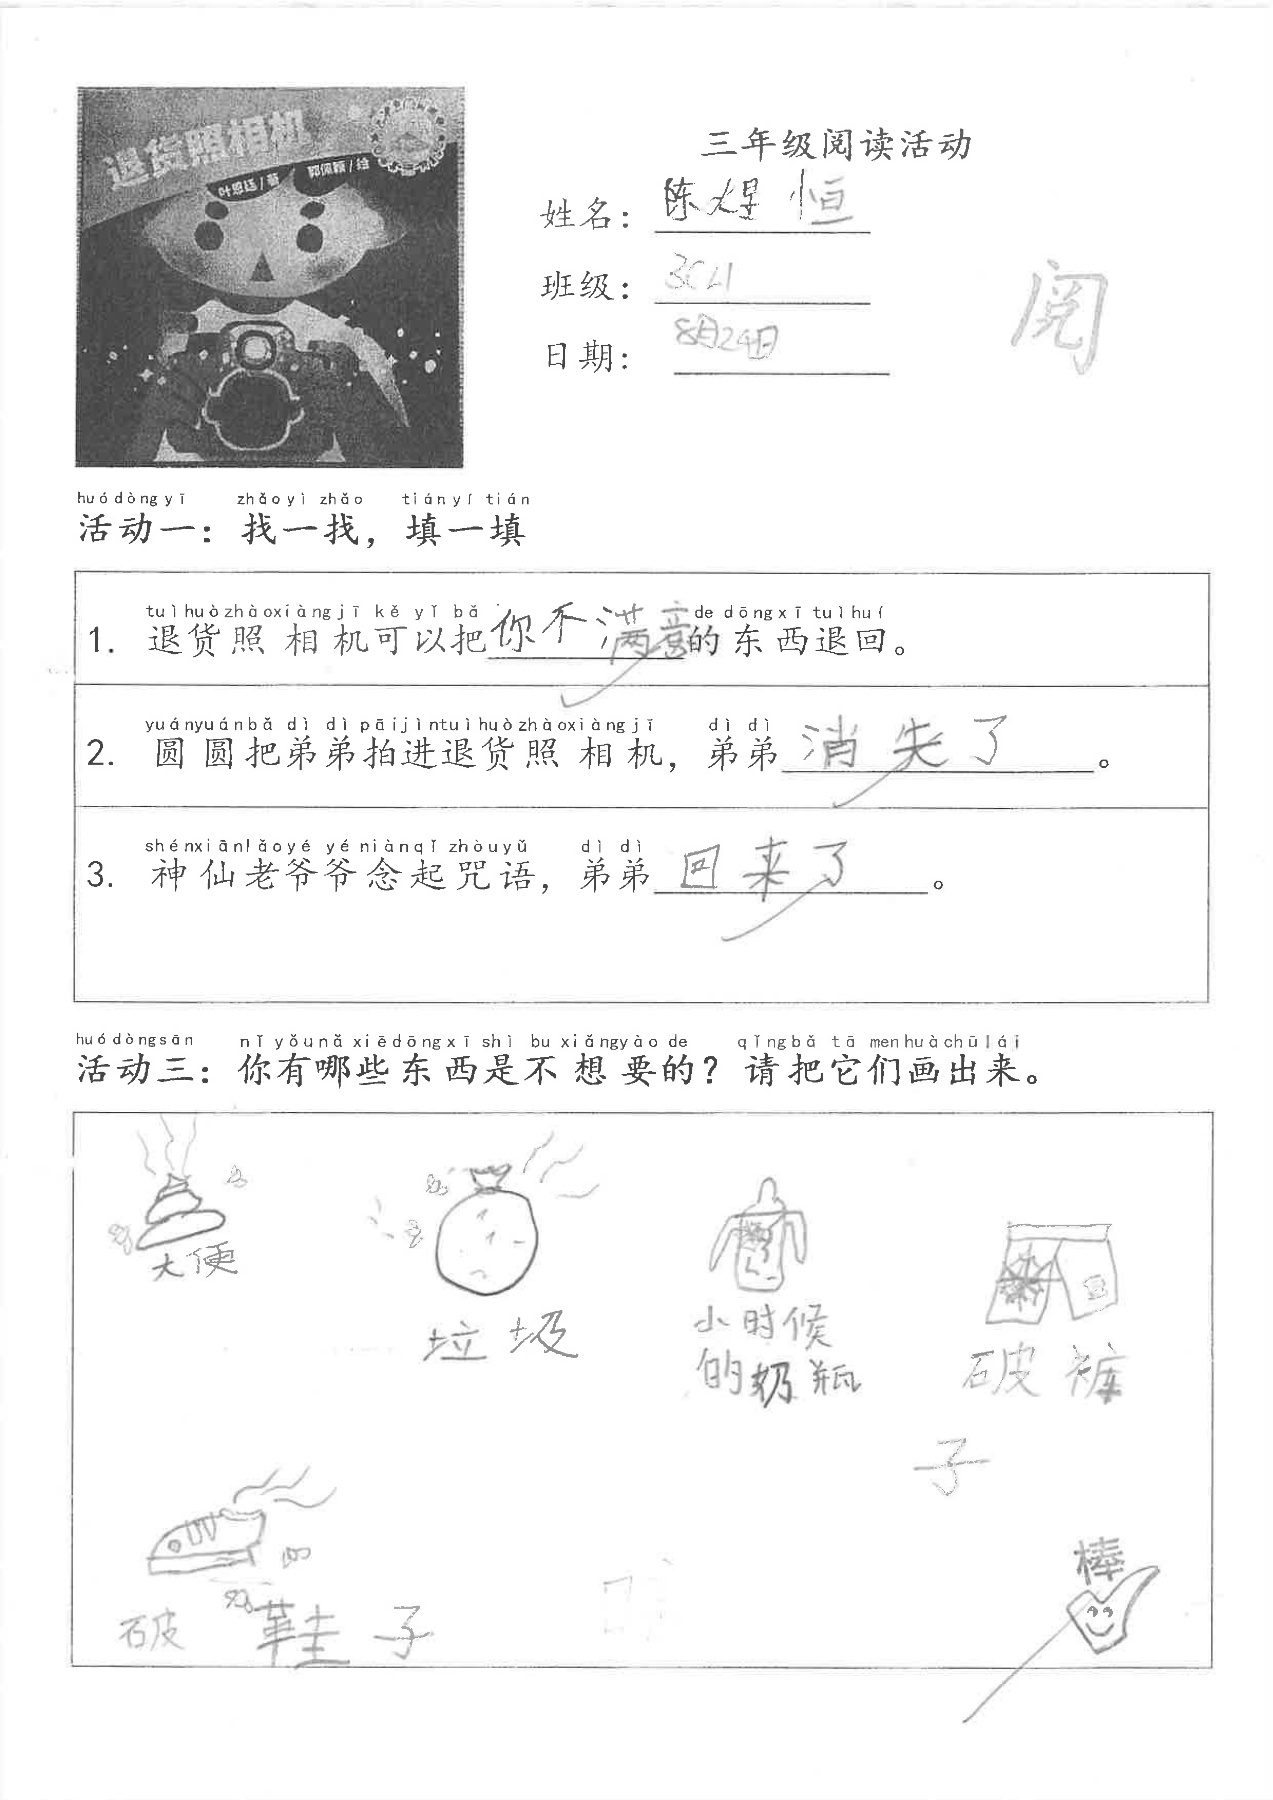 退货照相机
叶恩廷/著 郭佩颖/绘
三年级阅读活动
姓名： 陈煋恒
班级： 3CLI
日期： 8月24日
阅
huó dòng yī zhǎo yì zhǎo tián yí tián
活动一：找一找，填一填
tuì huò zhào xiàng jī kě yǐ bǎ de dōng xī tuì huí
1. 退货照相机可以把你不满意的东西退回。
yuán yuán bǎ dì dì pāi jìn tuì huò zhào xiàng jī dì dì
2. 圆圆把弟弟拍进退货照相机，弟弟消失了。
shén xiān lǎo yé yé niàn qǐ zhòu yǔ dì dì
3. 神仙老爷爷念起咒语，弟弟回来了。
huó dòng sān nǐ yǒu nǎ xiē dōng xī shì bu xiǎng yào de qǐng bǎ tā men huà chū lái
活动三：你有哪些东西是不想要的？请把它们画出来。
大便
垃圾
小时候
的奶瓶
破裤
子
破鞋子
棒